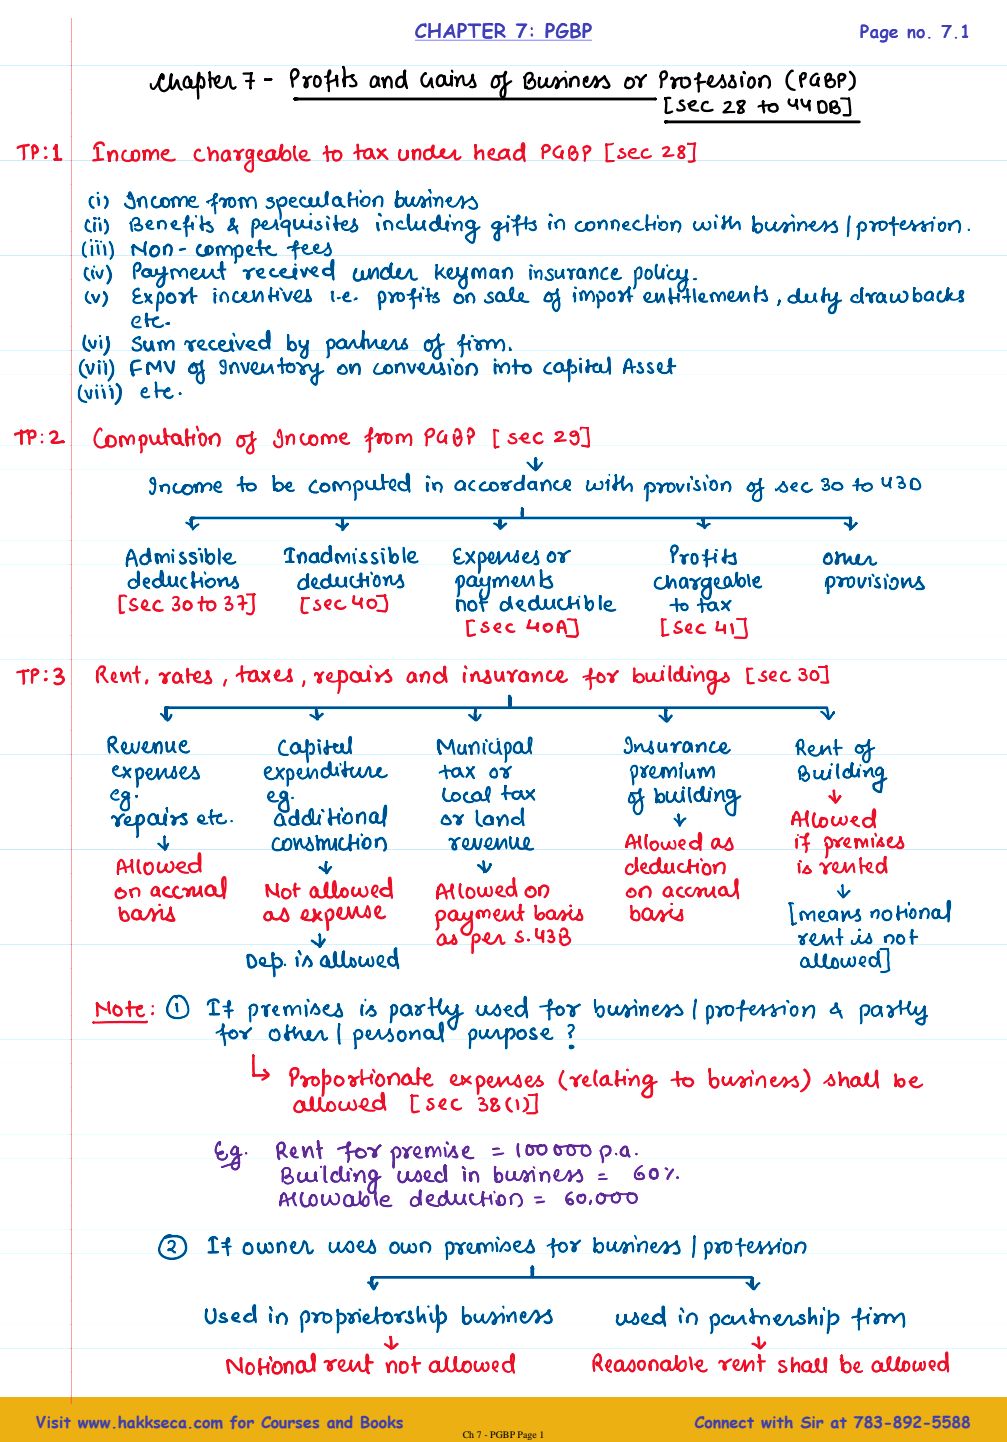 CHAPTER 7: PGBP
Page no. 7.1
Chapter 7 - Profits and Gains of Business or Profession (PGBP)
[Sec 28 to 44DB]
TP:1 Income chargeable to tax under head PGBP [sec 28]
(i) Income from speculation business
(ii) Benefits & perquisites including gifts in connection with business/profession.
(iii) Non-compete fees
(iv) Payment received under keyman insurance policy.
(v) Export incentives i.e. profits on sale of import entitlements, duty drawbacks
etc.
(vi) Sum received by partners of firm.
(vii) FMV of Inventory on conversion into capital Asset
(viii) etc.
TP:2 Computation of Income from PGBP [sec 29]
Income to be computed in accordance with provision of sec 30 to 43D
Admissible
deductions
[sec 30 to 37]
Inadmissible
deductions
[sec 40]
Expenses or
payments
not deductible
[sec 40A]
Profits
chargeable
to tax
[sec 41]
other
provisions
TP:3 Rent, rates, taxes, repairs and insurance for buildings [sec 30]
Revenue
expenses
eg.
repairs etc.
Allowed
on accrual
basis
Capital
expenditure
eg.
additional
construction
Not allowed
as expense
Dep. is allowed
Municipal
tax or
local tax
or land
revenue
Allowed on
payment basis
as per s.43B
Insurance
premium
of building
Allowed as
deduction
on accrual
basis
Rent of
Building
Allowed
if premises
is rented
[means notional
rent is not
allowed]
Note: ① If premises is partly used for business/profession & partly
for other/personal purpose?
Proportionate expenses (relating to business) shall be
allowed [sec 38(1)]
Eg. Rent for premise = 100000 p.a.
Building used in business = 60%.
Allowable deduction = 60,000
② If owner uses own premises for business/profession
Used in proprietorship business
Notional rent not allowed
used in partnership firm
Reasonable rent shall be allowed
Visit www.hakkseca.com for Courses and Books
Connect with Sir at 783-892-5588
Ch 7 - PGBP Page 1